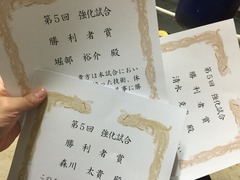 第5回 強化試合
勝利者賞
堀部 裕介 殿
貴方は本試合におい
第5回 強化試合
勝利者賞
清長
殿
第5回 強化試合
勝利者賞
森川 太貴 殿